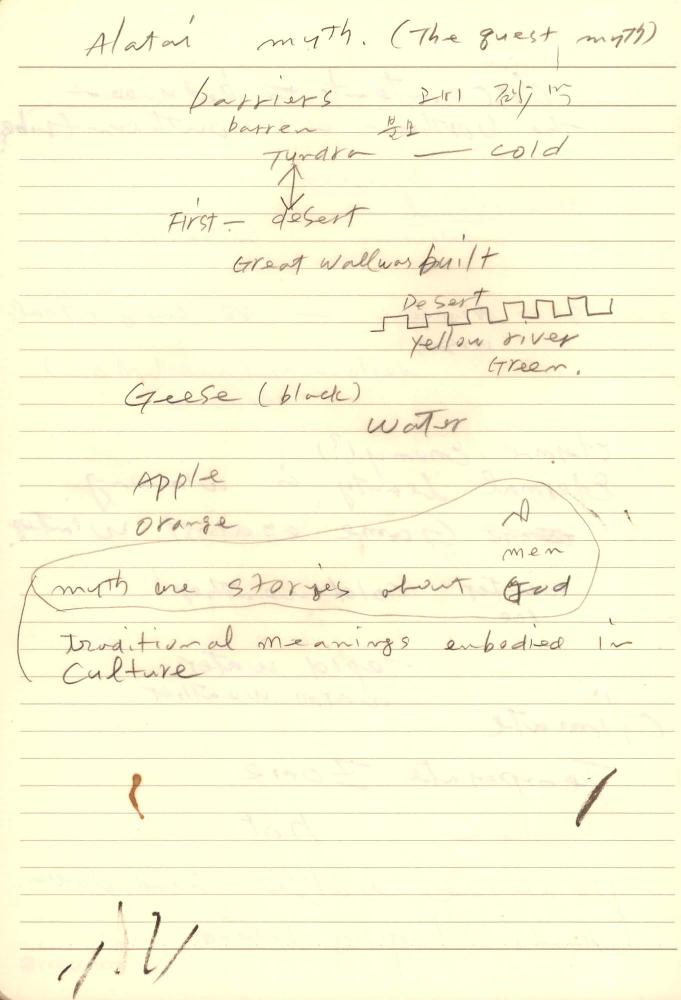 Alatai myth. (The quest myth)
barriers 고비
barren 불모
Tundra — cold
First — desert
Great Wall was built
Desert
Yellow river
Green.
Geese (black)
Water
Apple
Orange
men
myth are stories about God
traditional meanings embodied in
Culture